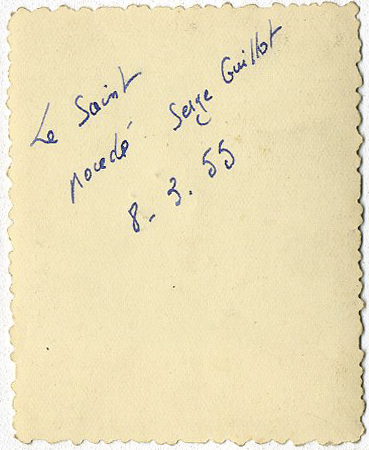 Le Saint
Serge Guillot
8-3.55